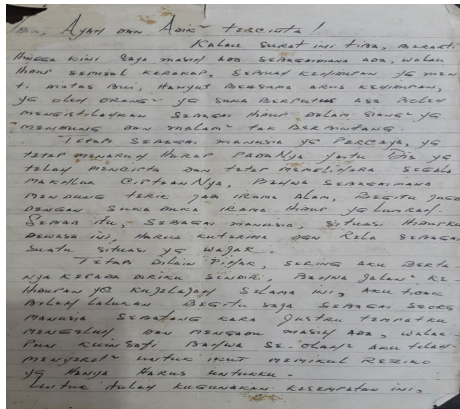 Ibu, Ayah dan Adik² tercinta!
Kalau surat ini tiba, berarti
hingga kini saya masih ada sebagaimana ada, walau
hidup semisal kerakap, sebuah kehidupan yg
di atas bui, hanyut bersama arus kehidupan,
yg oleh orang² yg suka berputus asa boleh
mengistilahkan sebagai hidup dalam siang² yg
mendung dan malam² tak berbintang.
Tetapi sebagai manusia yg percaya, yg
tetap menaruh harap padaNya justu Dia yg
telah mencipta dan tetap memelihara segala
makhluk ciptaanNya, bahwa sebagaimana
mendung terik jadi irama alam, begitu juga
dengan suka duka irama hidup yg lumrah.
Semua itu, sebagai manusia, situasi hidupku
dewasa ini, harus kuterima dan rela sebagai
suatu situasi yg wajar.-
Tetapi dilain pihak, sering aku berta
nya kepada diriku sendiri, bahwa jalan² ke-
hidupan yg kujelajah selama ini, aku tidak
boleh lalukan begitu saja sebagai seorg
manusia sebatang kara justru tempatku
mengeluh dan mengadu masih ada, walau
pun kuinsafi bahwa se-olah² aku telah
menyeret² untuk ikut memikul resiko
yg hanya harus untukku.-
Untuk itulah kugunakan kesempatan ini,